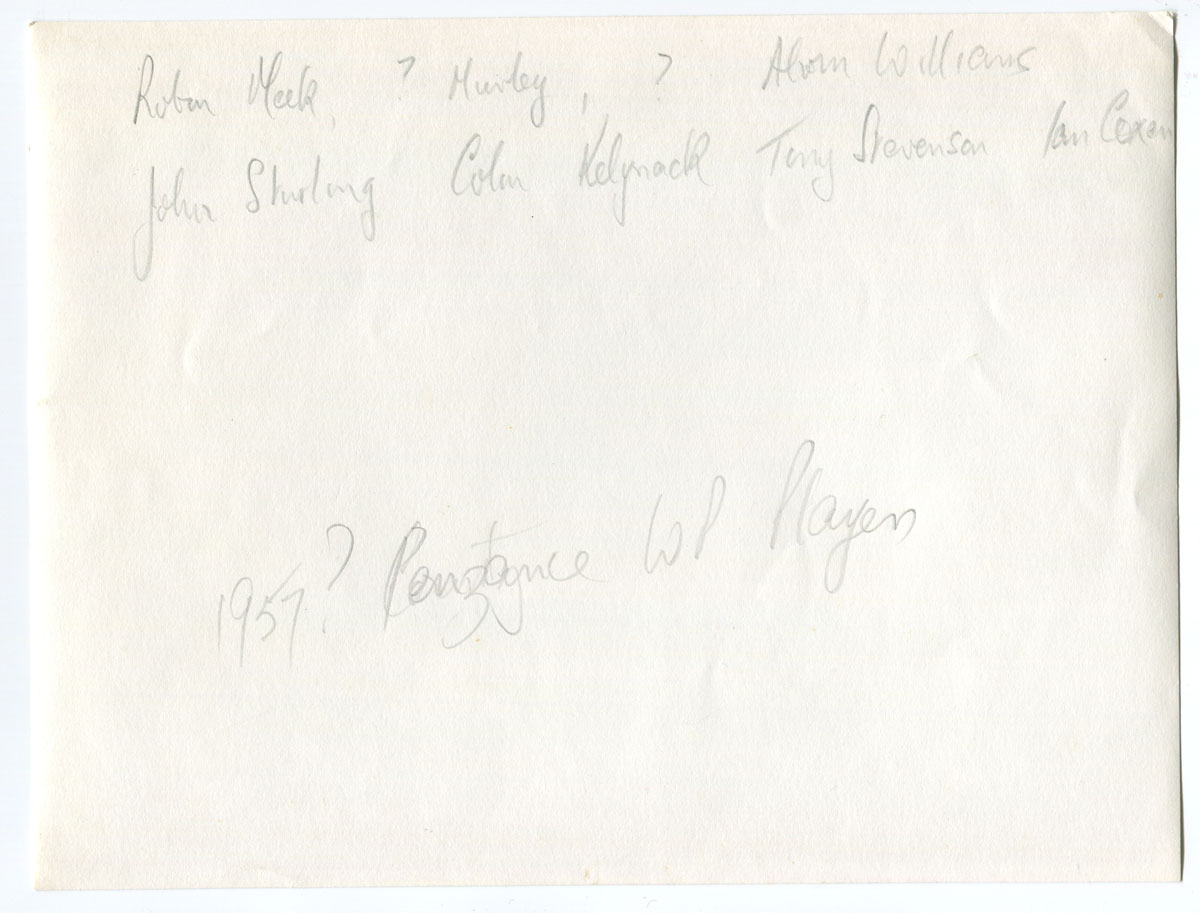 Robin Meek, ? Hurley, ? Alvin Williams
John Sturling Colin Kelynack Tony Stevenson Ian
1957? Penzance WP Players